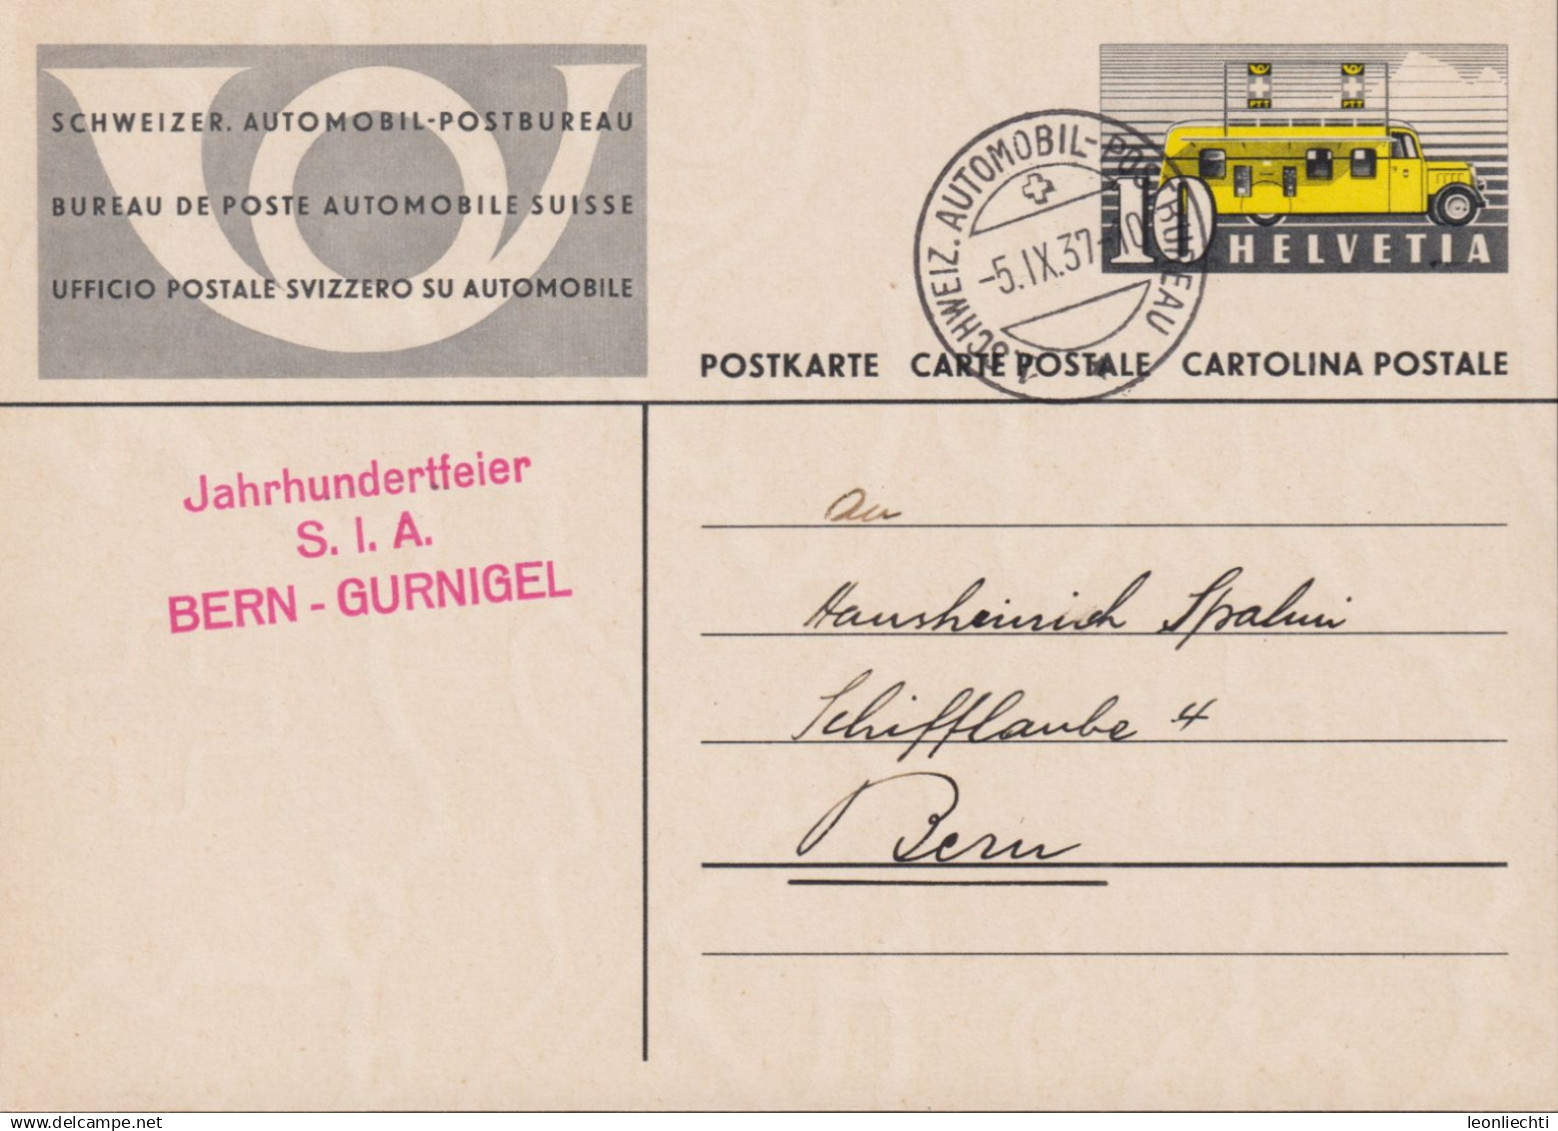 SCHWEIZER. AUTOMOBIL-POSTBUREAU
BUREAU DE POSTE AUTOMOBILE SUISSE
UFFICIO POSTALE SVIZZERO SU AUTOMOBILE
PTT PTT
10 HELVETIA
SCHWEIZ. AUTOMOBIL-POSTBUREAU
-5.IX.37-10
POSTKARTE CARTE POSTALE CARTOLINA POSTALE
Jahrhundertfeier
S. I. A.
BERN - GURNIGEL
An
Hausheinrich Spalini
Schifflaube 4
Bern
leonliechti